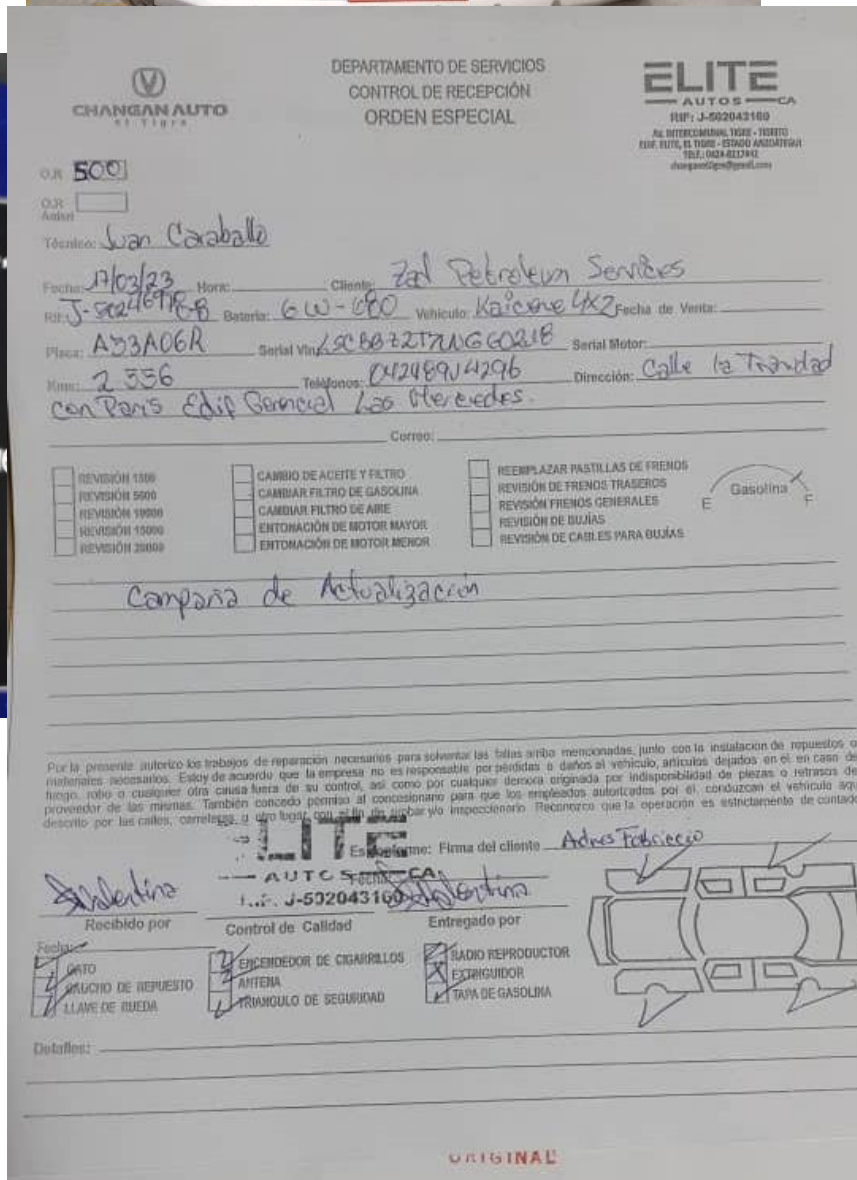 CHANGAN AUTO
El Tigre
DEPARTAMENTO DE SERVICIOS
CONTROL DE RECEPCIÓN
ORDEN ESPECIAL
ELITE
AUTOS CA
RIF: J-502043160
Av. INTERCOMUNAL TIGRE - TIGRITO
EDIF. ELITE, EL TIGRE - ESTADO ANZOATEGUI
O.R 5001
O.R
Técnico: Juan Caraballo
Fecha: 17/03/23 Hora: Cliente: Zed Petroleum Services
Rif: Bateria: 6W-080 Vehiculo: Kaicene 4X2 Fecha de Venta:
Placa: A33A06R Serial Vin: Serial Motor:
Kms: 2336 Teléfonos: Dirección: Calle la Trinidad
con Paris Edif Gerencial Las Mercedes.
Correo:
REVISIÓN 1500
REVISIÓN 5000
REVISIÓN 10000
REVISIÓN 15000
REVISIÓN 20000
CAMBIO DE ACEITE Y FILTRO
CAMBIAR FILTRO DE GASOLINA
CAMBIAR FILTRO DE AIRE
ENTONACIÓN DE MOTOR MAYOR
ENTONACIÓN DE MOTOR MENOR
REEMPLAZAR PASTILLAS DE FRENOS
REVISIÓN DE FRENOS TRASEROS
REVISIÓN FRENOS GENERALES
REVISIÓN DE BUJÍAS
REVISIÓN DE CABLES PARA BUJÍAS
E Gasolina F
Campaña de Actualización
Por la presente autorizo los trabajos de reparación necesarios para solventar las fallas arriba mencionadas, junto con la instalación de repuestos o
materiales necesarios. Estoy de acuerdo que la empresa no es responsable por perdidas o daños al vehículo, articulos dejados en el en caso de
fuego, robo o cualquier otra causa fuera de su control, así como por cualquier demora originada por indisponibilidad de piezas o retrasos del
proveedor de las mismas. También concedo permiso al concesionario para que los empleados autorizados por el, conduzcan el vehículo aquí
descrito por las calles, carreteras u otro lugar con el fin de probar y/o inspeccionarlo. Reconozco que la operación es estrictamente de contado
ELITE
AUTOS CA
J-502043160
Es conforme: Firma del cliente
Valentina
Valentina
Recibido por
Control de Calidad
Entregado por
Fecha:
GATO
CAUCHO DE REPUESTO
LLAVE DE RUEDA
ENCENDEDOR DE CIGARRILLOS
ANTENA
TRIANGULO DE SEGURIDAD
RADIO REPRODUCTOR
EXTINGUIDOR
TAPA DE GASOLINA
Detalles:
ORIGINAL